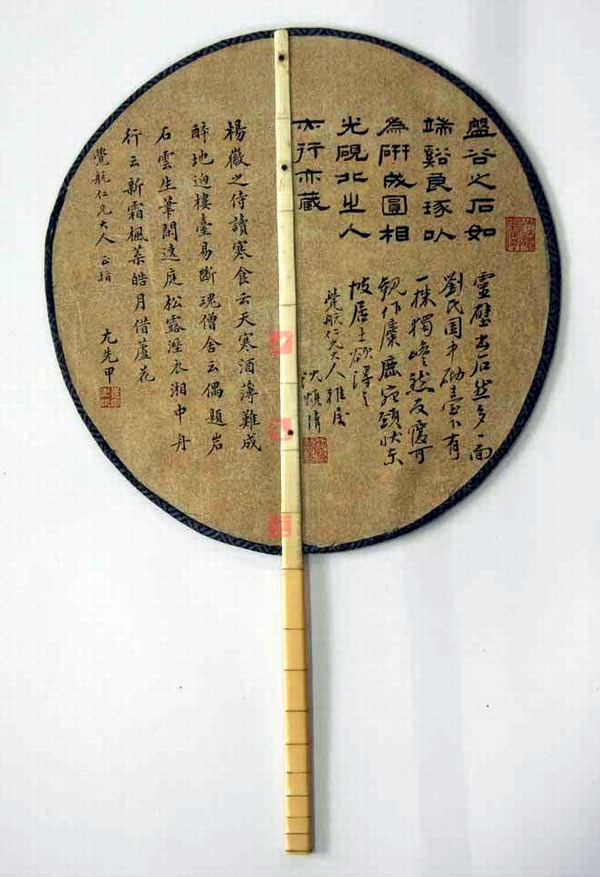 盤谷之石如
端谿良琢以
為研成圓相
光硯北之人
行亦藏
靈壁出石然多一面
劉氏園中砌臺下有
一株獨巉然反覆可
觀作麋鹿宛頸狀東
坡居士欲得之
覺航仁兄大人雅屬
沈頌清
楊徽之侍讀寒食云天寒酒薄難成
醉地迥樓臺易斷魂僧舍云偶題岩
石雲生筆閒遶庭松露溼衣湘中舟
行云新霜楓葉皓月借蘆花
覺航仁兄大人正指
尤先甲